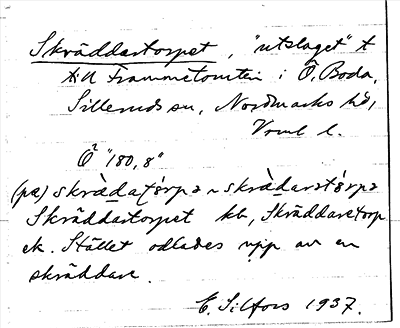 Skräddartorpet, "utslaget" t
till Frammetomten i Ö. Boda,
Silleruds sn, Nordmarks hd,
Vrml l.
Ö² "180,8"
(på) skrädatårpə ~ skrädarstårpə
Skräddartorpet kb, Skräddaretorp
ek. Stället odlades upp av en
skräddare.
E. Silfors 1937.